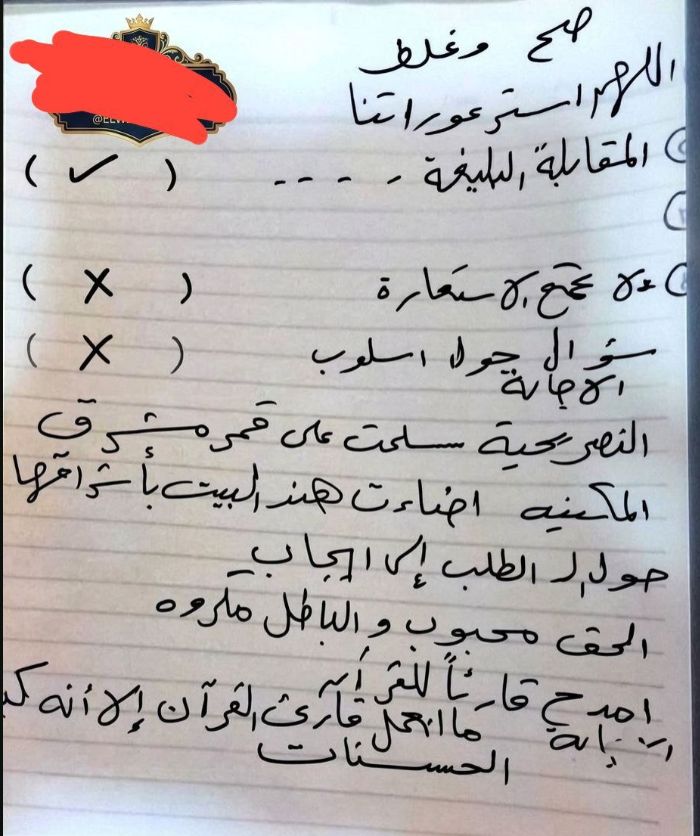 صح وغلط
اللهم استر عوراتنا
المقابلة البليغة - - - - ( ✓ )
لا تجتمع الاستعارة ( X )
سؤال حول اسلوب ( X )
الاجابة
التصريحية سلمت على قمر مشرق
المكنيه اضاءت هند البيت بأشراقها
حول الطلب إلى ايجاب
الحق محبوب و الباطل مكروه
امدح قارئاً للقرآن
ما اجمل قارئ القرآن إلا أنه
الحسنات